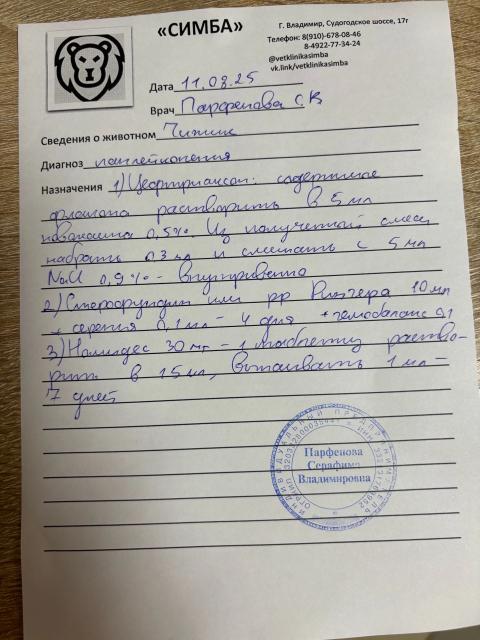 «СИМБА»
Г. Владимир, Судогодское шоссе, 17г
Телефон: 8(910)-678-08-46
8-4922-77-34-24
@vetklinikasimba
vk.link/vetklinikasimba
Дата 11.08.25
Врач Парфенова С.В
Сведения о животном Чижик
Диагноз панлейкопения
Назначения 1) Цефтриаксон: содержимое
флакона растворить в 5 мл
новокаина 0,5%. Из полученной смеси
набрать 0,3 мл и смешать с 5 мл
NaCl 0,9% - внутривенно
2) Стерофундин или рр Рингера 10 мл
+ серения 0,1 мл - 4 дня + гемобаланс 0,1
3) 30 мг - 1 таблетку раство-
рить в 15 мл, выпаивать 1 мл -
7 дней
ИНДИВИДУАЛЬНЫЙ ПРЕДПРИНИМАТЕЛЬ
Парфенова
Серафима
Владимировна